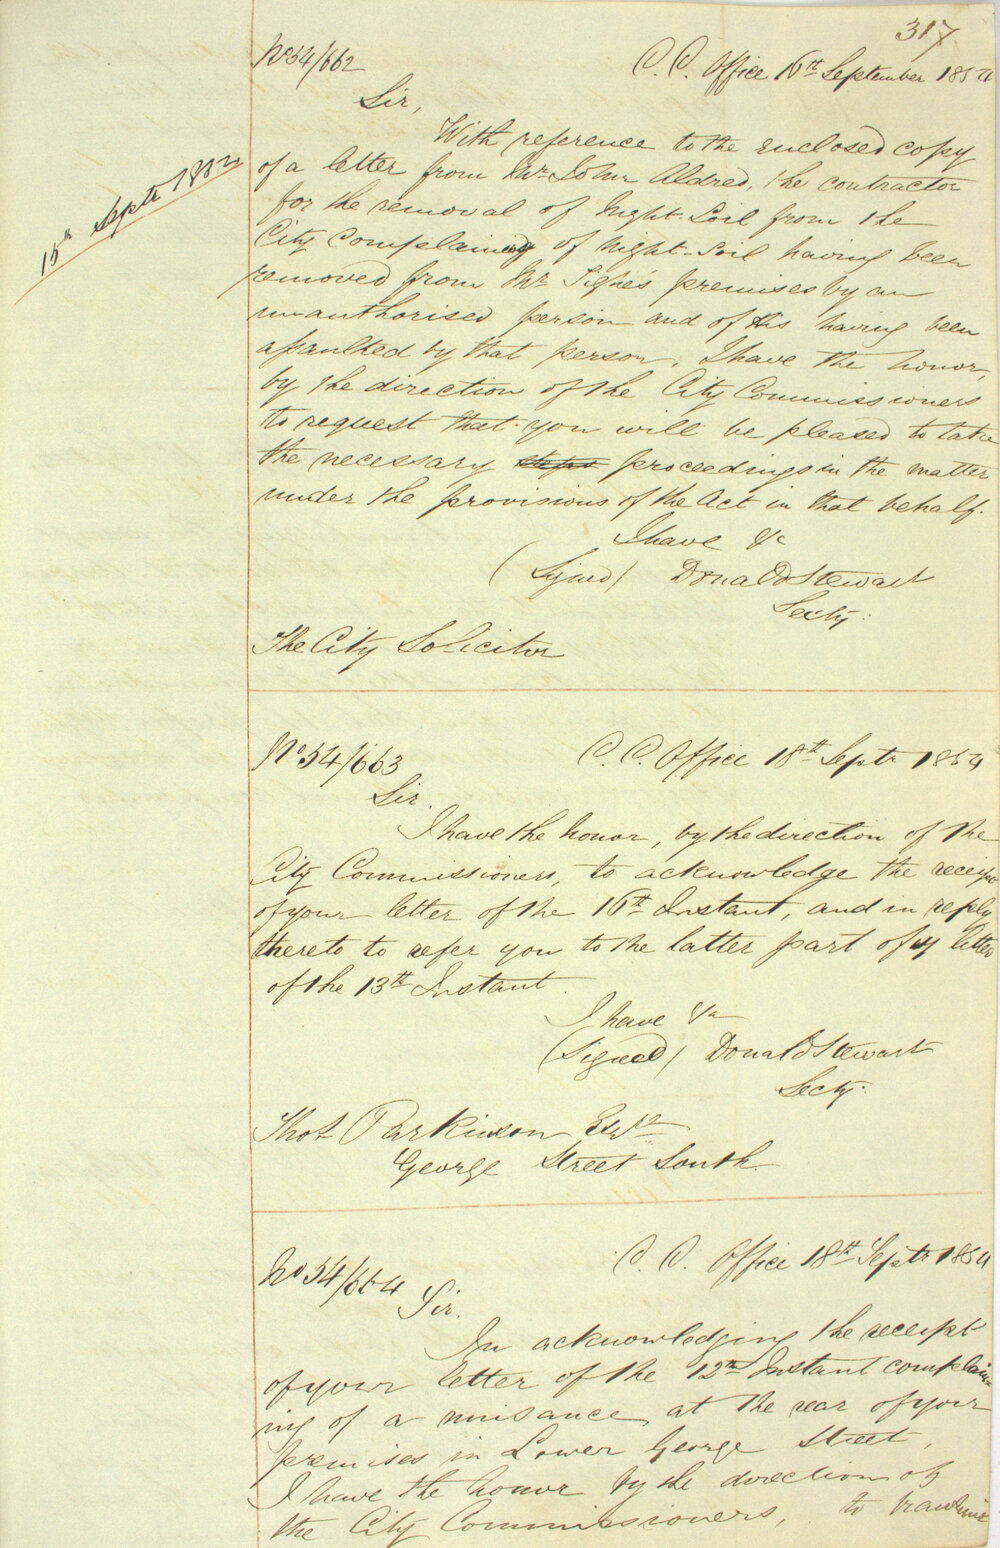 317
No 54/662
C. C. Office 16th September 1854
Sir,
With reference to the enclosed copy
of a letter from Mr John Aldred, the contractor
for the removal of Night-Soil from the
City Complaining of night-soil having been
removed from Mr Tighe's premises by an
unauthorised person and of his having been
assaulted by that person, I have the honor,
by the direction of the City Commissioners
to request that you will be pleased to take
the necessary steps proceedings in the matter
under the provisions of the Act in that behalf.
I have &c
(Signed) Donald Stewart
Secty.
The City Solicitor
15th Septr
No 54/663
C. C. Office 18th Septr 1854
Sir.
I have the honor, by the direction of the
City Commissioners, to acknowledge the receipt
of your letter of the 16th Instant, and in reply
thereto to refer you to the latter part of my letter
of the 13th Instant.
I have &c
(Signed) Donald Stewart
Secty.
Thos Parkinson Esqre
George Street South
No 54/664
C. C. Office 18th Septr 1854
Sir.
In acknowledging the receipt
of your letter of the 12th Instant complain-
ing of a nuisance at the rear of your
premises in Lower George Street,
I have the honor by the direction of
the City Commissioners, to